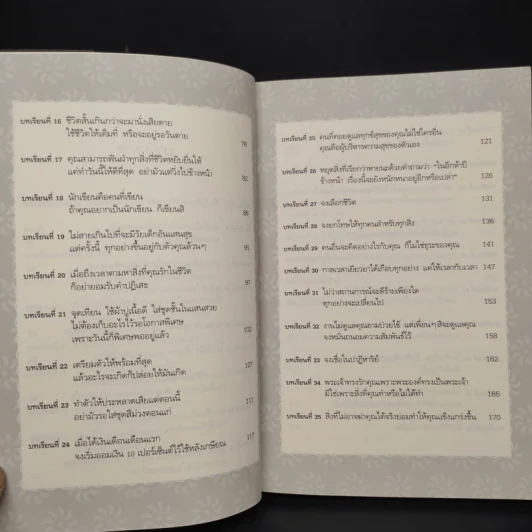 บทเรียนที่ 16 ชีวิตสั้นเกินกว่าจะมานั่งเสียดาย
ใช้ชีวิตให้เต็มที่ หรือจะอยู่รอวันตาย 76
บทเรียนที่ 17 คุณสามารถฟันฝ่าทุกสิ่งที่ชีวิตหยิบยื่นให้
แค่ทำวันนี้ให้ดีที่สุด อย่ามัวแต่วิ่งไปข้างหน้า 82
บทเรียนที่ 18 นักเขียนคือคนที่เขียน
ถ้าคุณอยากเป็นนักเขียน ก็เขียนสิ 86
บทเรียนที่ 19 ไม่สายเกินไปที่จะมีวัยเด็กอันแสนสุข
แต่ครั้งนี้ ทุกอย่างขึ้นอยู่กับตัวคุณล้วนๆ 91
บทเรียนที่ 20 เมื่อถึงเวลาตามหาสิ่งที่คุณรักในชีวิต
ก็อย่ายอมรับคำปฏิเสธ 97
บทเรียนที่ 21 จุดเทียน ใช้ผ้าปูเนื้อดี ใส่ชุดชั้นในแสนสวย
ไม่ต้องเก็บอะไรไว้รอโอกาสพิเศษ
เพราะวันนี้ก็พิเศษพออยู่แล้ว 102
บทเรียนที่ 22 เตรียมตัวให้พร้อมที่สุด
แล้วอะไรจะเกิดก็ปล่อยให้มันเกิด 107
บทเรียนที่ 23 ทำตัวให้ประหลาดเสียแต่ตอนนี้
อย่ามัวรอใส่ชุดสีม่วงตอนแก่ 111
บทเรียนที่ 24 เมื่อได้เงินเดือนเดือนแรก
จงเริ่มออมเงิน 10 เปอร์เซ็นต์ไว้ใช้หลังเกษียณ 117
บทเรียนที่ 25 คนที่คอยดูแลทุกข์สุขของคุณไม่ใช่ใครอื่น
คุณคือผู้บริหารความสุขของตัวเอง 121
บทเรียนที่ 26 หยุดสิ่งที่เรียกว่าหายนะด้วยคำถามว่า "ในอีกห้าปี
ข้างหน้า เรื่องนี้จะยังหนักหนาอยู่อีกหรือเปล่า" 126
บทเรียนที่ 27 จงเลือกชีวิต 131
บทเรียนที่ 28 จงยกโทษให้ทุกคนสำหรับทุกสิ่ง 136
บทเรียนที่ 29 คนอื่นจะคิดอย่างไรกับคุณ ก็ไม่ใช่ธุระของคุณ 141
บทเรียนที่ 30 กาลเวลาเยียวยาได้เกือบทุกอย่าง แค่ให้เวลากับเวลา 147
บทเรียนที่ 31 ไม่ว่าสถานการณ์จะดีร้ายเพียงใด
ทุกอย่างจะเปลี่ยนไป 153
บทเรียนที่ 32 งานไม่ดูแลคุณยามป่วยไข้ แต่เพื่อนๆ สิจะดูแลคุณ
จงหมั่นถนอมความสัมพันธ์ไว้ 158
บทเรียนที่ 33 จงเชื่อในปาฏิหาริย์ 162
บทเรียนที่ 34 พระเจ้าทรงรักคุณเพราะพระองค์ทรงเป็นพระเจ้า
มิใช่เพราะสิ่งที่คุณทำหรือไม่ได้ทำ 165
บทเรียนที่ 35 สิ่งที่ไม่อาจฆ่าคุณได้จริงย่อมทำให้คุณแข็งแกร่งขึ้น 170